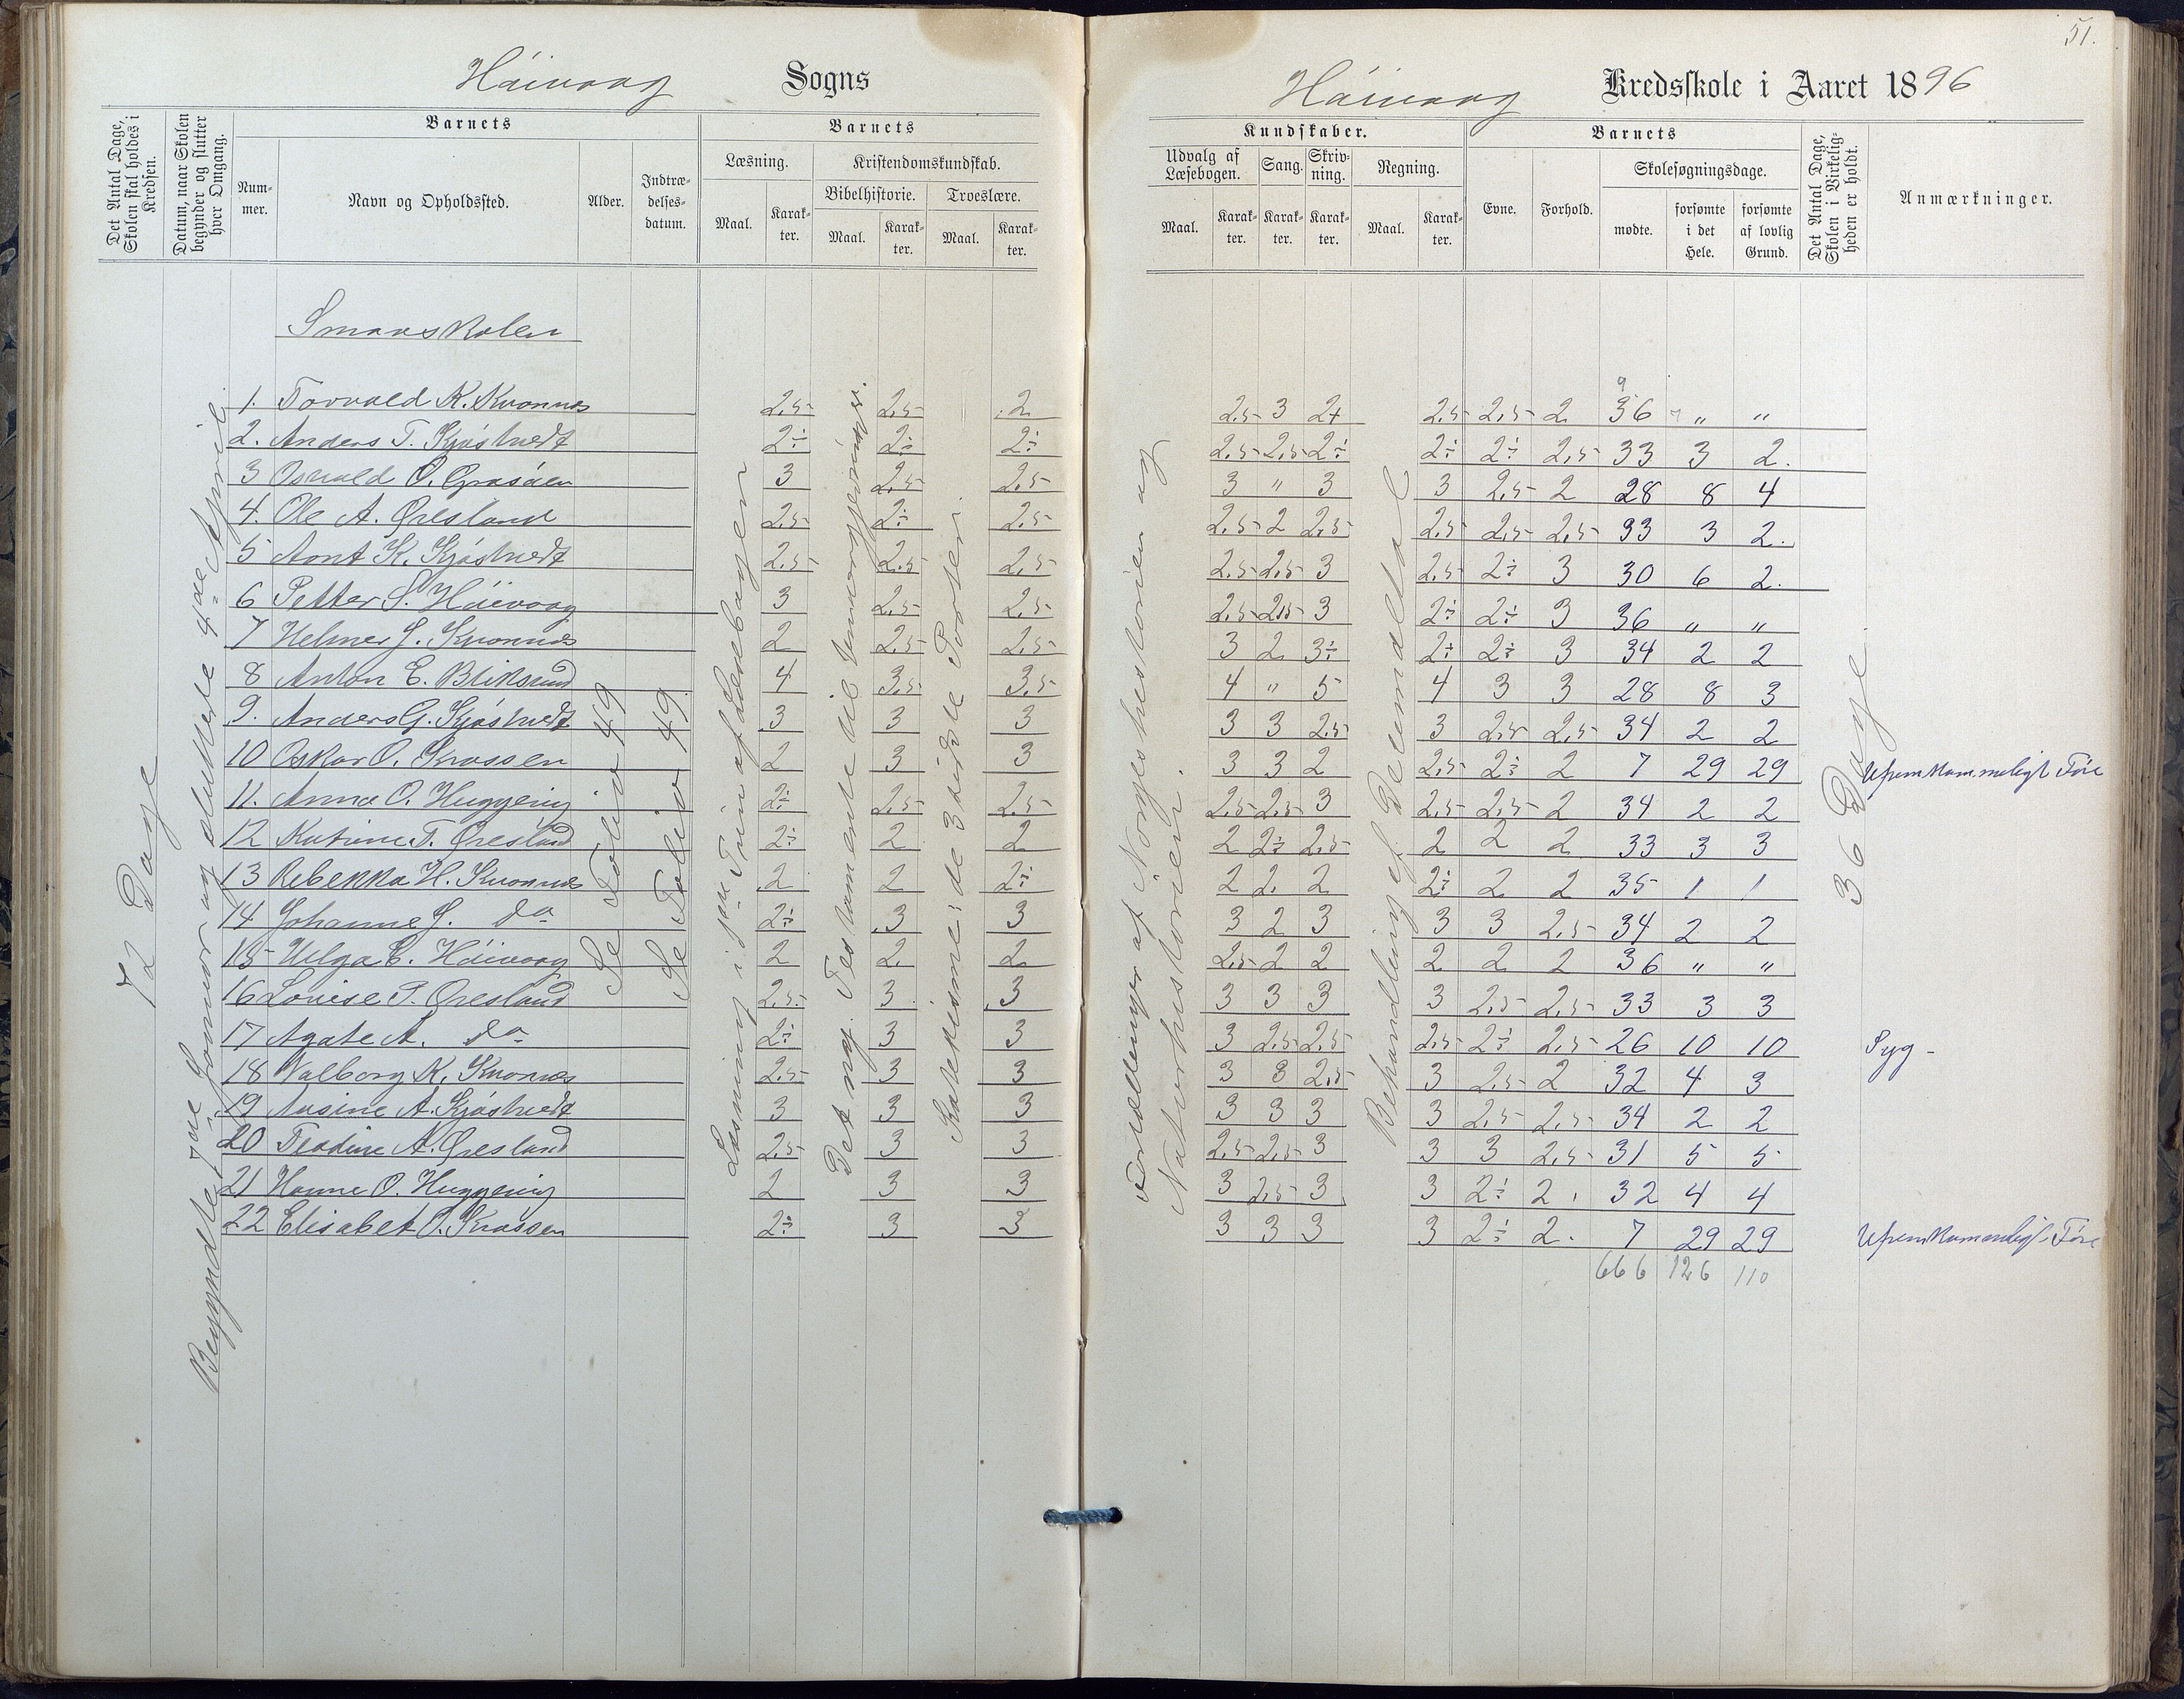 51.
Höivaag Sogns
Höivaag Kredsskole i Aaret 1896
Det Antal Dage, Skolen skal holdes i Kredsen.
Datum, naar Skolen begynder og slutter hver Omgang.
Barnets
Num-mer.
Navn og Opholdssted.
Alder.
Indtræ-delses-datum.
Barnets
Læsning.
Maal. Karak-ter.
Kristendomskundskab.
Bibelhistorie.
Maal. Karak-ter.
Troeslære.
Maal. Karak-ter.
Kundskaber.
Udvalg af Læsebogen.
Maal. Karak-ter.
Sang.
Karak-ter.
Skriv-ning.
Karak-ter.
Regning.
Maal. Karak-ter.
Barnets
Evne.
Forhold.
Skolesøgningsdage.
mødte.
forsømte i det Hele.
forsømte af lovlig Grund.
Det Antal Dage, Skolen i Virkelig-heden er holdt.
Anmærkninger.
72 Dage
Begyndte 7de Januar og sluttede 4de April
Se Folio 49
Se Folio 49
Læsning i 1ste Trin af Læsebogen
Det nye Testamente til
Katekismen: de 3 sidste Parter.
Fortællinger af Norgeshistorien og
Naturhistorien.
Behandling af Decimaltal
36 Dage
Smaaskolen
1. Torvald K. Kvannes 2,5 2,5 2 2,5 3 2+ 2,5 2,5 2 36 " "
2. Anders T. Kjøstvedt 2÷ 2÷ 2÷ 2,5 2,5 2÷ 2÷ 2÷ 2,5 33 3 2.
3 Osvald O. Grasåen 3 2,5 2,5 3 " 3 3 2,5 2 28 8 4
4. Ole A. Øresland 2,5 2÷ 2,5 2,5 2 2,5 2,5 2,5 2,5 33 3 2.
5 Aont K. Kjøstvedt 2,5 2,5 2,5 2,5 2,5 3 2,5 2÷ 3 30 6 2.
6 Petter S. Höivaag 3 2,5 2,5 2,5 2,5 3 2÷ 2÷ 3 36 " "
7 Helmer J. Kvannes 2 2,5 2,5 3 2 3÷ 2÷ 2÷ 3 34 2 2
8 Anton E. Bliksund 4 3,5 3,5 4 " 5 4 3 3 28 8 3
9. Anders G. Kjøstvedt 3 3 3 3 3 2,5 3 2,5 2,5 34 2 2
10 Oskar O. Krossen 2 3 3 3 3 2 2,5 2÷ 2 7 29 29 Ufremkommeligt Føre
11. Anna O. Huggenij 2÷ 2,5 2,5 2,5 2,5 3 2,5 2,5 2 34 2 2
12 Katrine T. Øresland 2÷ 2 2 2 2÷ 2,5 2 2 2 33 3 3
13 Rebekka H. Kvannes 2 2 2÷ 2 2. 2 2÷ 2 2 35 1 1
14 Johanne J. do 2÷ 3 3 3 2 3 3 3 2,5 34 2 2
15 Helga E. Höivaag 2 2. 2 2,5 2 2 2 2 2 36 " "
16 Louise T. Øresland 2,5 3 3 3 3 3 3 2,5 2,5 33 3 3
17 Agate A. do 2÷ 3 3 3 2,5 2,5 2,5 2÷ 2,5 26 10 10 Syg -
18 Valborg K. Kvannes 2,5 3 3 3 3 2,5 3 2,5 2 32 4 3
19 Ausine A. Kjøstvedt 3 3 3 3 3 3 3 2,5 2,5 34 2 2
20 Teodine A. Øresland 2,5 3 3 2,5 2,5 3 3 3 2,5 31 5 5
21 Hanne O. Huggenij 2 3 3 3 2,5 3 3 2÷ 2. 32 4 4
22 Elisabet O. Krossen 2÷ 3 3 3 3 3 3 2÷ 2. 7 29 29 Ufremkommeligt Føre
666 126 110